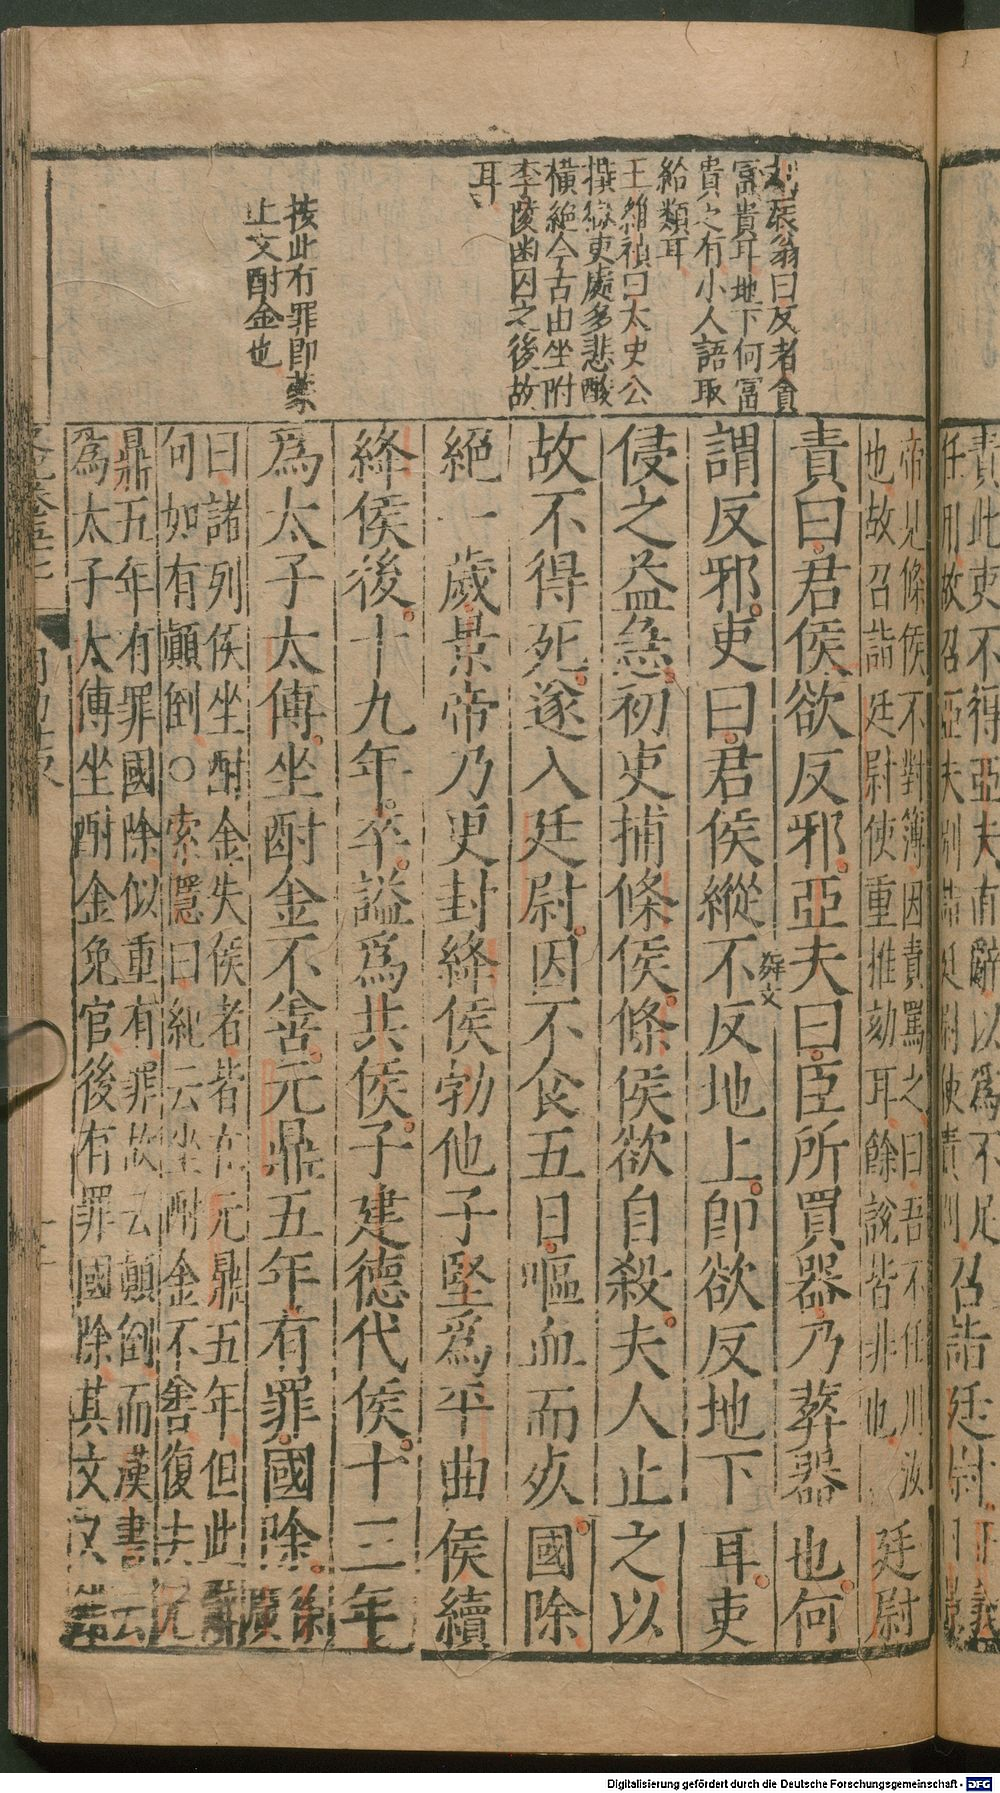 責此吏不得亞夫直辭以爲不足
任用故召亞夫別詣廷尉使責
召詣廷尉
帝見條侯不對簿因責罵之曰吾不任用汝
也故召詣廷尉使重推劾耳餘說皆非也
廷尉
責曰君侯欲反邪亞夫曰臣所買器乃葬器也何
謂反邪吏曰君侯縱不反地上即欲反地下耳吏
侵之益急初吏捕條侯條侯欲自殺夫人止之以
故不得死遂入廷尉因不食五日嘔血而死國除
絕一歲景帝乃更封絳侯勃他子堅爲平曲侯續
絳侯後十九年卒謚爲共侯子建德代侯十三年
爲太子太傅坐酎金不善元鼎五年有罪國除
徐廣
曰諸列侯坐酎金失侯者皆在元鼎五年但此
何如有顛倒○索隱曰紀云坐酎金不善復去元
鼎五年有罪國除似重有罪故云顛倒而漢書云
爲太子太傅坐酎金免官後有罪國除其文又
辰翁曰反者貪
富貴耳地下何富
貴之有小人語取
給類耳
王維禎曰太史公
撰敘吏處多悲酸
橫絕今古由坐附
李陵幽囚之後故
耳
按此有罪即蒙
上文酎金也
葬文
Digitalisierung gefördert durch die Deutsche Forschungsgemeinschaft - DFG